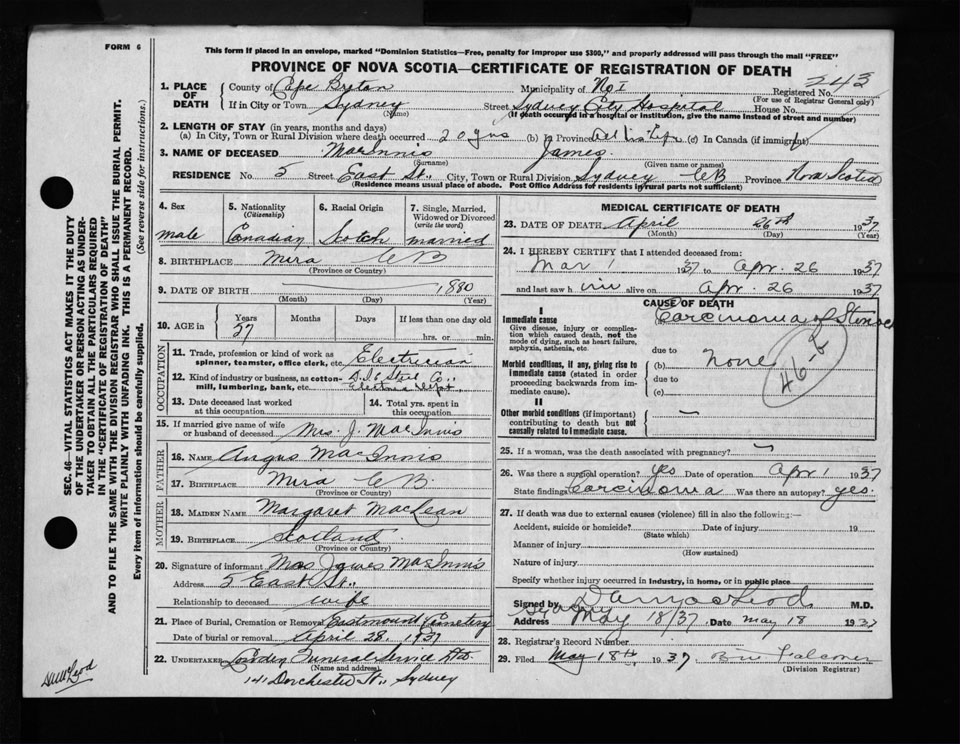 FORM 6
This form if placed in an envelope, marked "Dominion Statistics—Free, penalty for improper use $300," and properly addressed will pass through the mail "FREE"
PROVINCE OF NOVA SCOTIA—CERTIFICATE OF REGISTRATION OF DEATH
243
1. PLACE OF DEATH
County of Cape Breton Municipality of No I Registered No.
(For use of Registrar General only)
If in City or Town Sydney Street Sydney City Hospital House No.
(Name) (If death occurred in a hospital or institution, give the name instead of street and number)
2. LENGTH OF STAY (in years, months and days)
(a) In City, Town or Rural Division where death occurred 20 yrs (b) in Province all his life (c) In Canada (if immigrant)
3. NAME OF DECEASED MacInnis James
(Surname) (Given name or names)
RESIDENCE No. 5 Street East St. City, Town or Rural Division Sydney CB Province Nova Scotia
(Residence means usual place of abode. Post Office Address for residents in rural parts not sufficient)
4. Sex
male
5. Nationality (Citizenship)
Canadian
6. Racial Origin
Scotch
7. Single, Married, Widowed or Divorced (write the word)
married
8. BIRTHPLACE Mira CB
(Province or Country)
9. DATE OF BIRTH 1880
(Month) (Day) (Year)
10. AGE in Years Months Days If less than one day old
57 hrs. or min.
OCCUPATION
11. Trade, profession or kind of work as spinner, teamster, office clerk, etc. Electrician
12. Kind of industry or business, as cotton-mill, lumbering, bank, etc.
13. Date deceased last worked at this occupation
14. Total yrs. spent in this occupation
15. If married give name of wife or husband of deceased Mrs. J. MacInnis
FATHER
16. NAME Angus MacInnis
17. BIRTHPLACE Mira CB.
(Province or Country)
MOTHER
18. MAIDEN NAME Margaret MacLean
19. BIRTHPLACE Scotland
(Province or Country)
20. Signature of informant Mrs James MacInnis
Address 5 East St.
Relationship to deceased wife
21. Place of Burial, Cremation or Removal Eastmount Cemetery
Date of burial or removal April 28, 1937
22. UNDERTAKER Funeral Service Ltd.
(Name and address)
141 Dorchester St., Sydney
MEDICAL CERTIFICATE OF DEATH
23. DATE OF DEATH April 26th 1937
(Month) (Day) (Year)
24. I HEREBY CERTIFY that I attended deceased from:
Mar 1 1937 to Apr. 26 1937
and last saw him alive on Apr. 26 1937
CAUSE OF DEATH
I
Immediate cause
Give disease, injury or complication which caused death, not the mode of dying, such as heart failure, asphyxia, asthenia, etc
Carcinoma of Stomach
due to
Morbid conditions, if any, giving rise to immediate cause (stated in order proceeding backwards from immediate cause).
(b) None
due to
(c)
46 b
II
Other morbid conditions (if important) contributing to death but not causally related to immediate cause.
25. If a woman, was the death associated with pregnancy?
26. Was there a surgical operation? yes Date of operation Apr 1 1937
State findings Carcinoma Was there an autopsy? yes.
27. If death was due to external causes (violence) fill in also the following:—
Accident, suicide or homicide? Date of injury 19
(State which)
Manner of injury
(How sustained)
Nature of injury
Specify whether injury occurred in industry, in home, or in public place
Signed by M.D.
Address Sydney May 18/37 Date may 18 1937
28. Registrar's Record Number
29. Filed May 18th 1937 Falconer
(Division Registrar)
SEC. 46—VITAL STATISTICS ACT MAKES IT THE DUTY
OF THE UNDERTAKER OR PERSON ACTING AS UNDER-
TAKER TO OBTAIN ALL THE PARTICULARS REQUIRED
IN THE "CERTIFICATE OF REGISTRATION OF DEATH"
AND TO FILE THE SAME WITH THE DIVISION REGISTRAR WHO SHALL ISSUE THE BURIAL PERMIT.
WRITE PLAINLY WITH UNFADING INK. THIS IS A PERMANENT RECORD.
Every item of information should be carefully supplied. (See reverse side for instructions.)